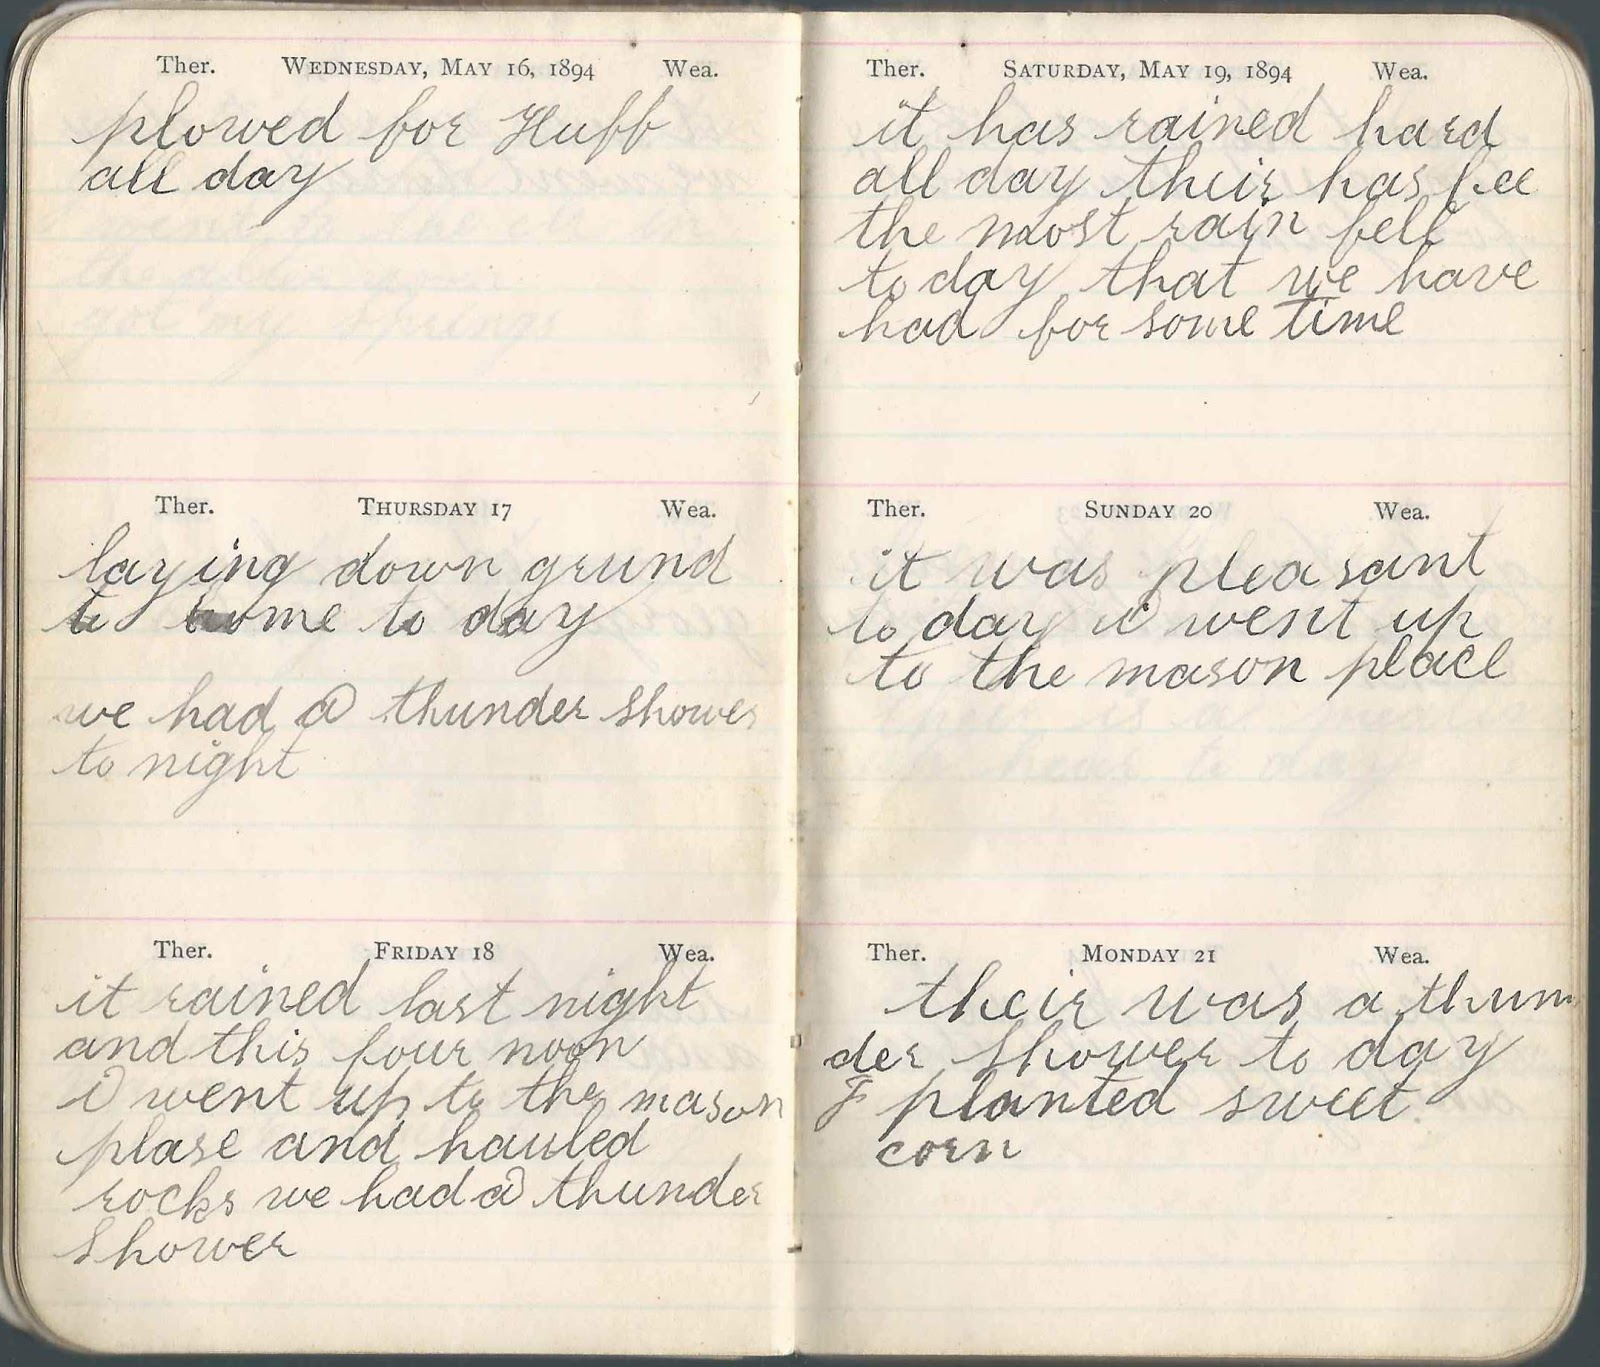 Ther. WEDNESDAY, MAY 16, 1894 Wea.
plowed for Huff
all day
Ther. THURSDAY 17 Wea.
laying down grund
to home to day
we had a thunder shower
to night
Ther. FRIDAY 18 Wea.
it rained last night
and this four noon
i went up to the mason
plase and hauled
rocks we had a thunder
shower
Ther. SATURDAY, MAY 19, 1894 Wea.
it has rained hard
all day their has
the most rain fell
to day that we have
had for some time
Ther. SUNDAY 20 Wea.
it was pleasant
to day i went up
to the mason place
Ther. MONDAY 21 Wea.
their was a thun
der shower to day
planted sweet
corn